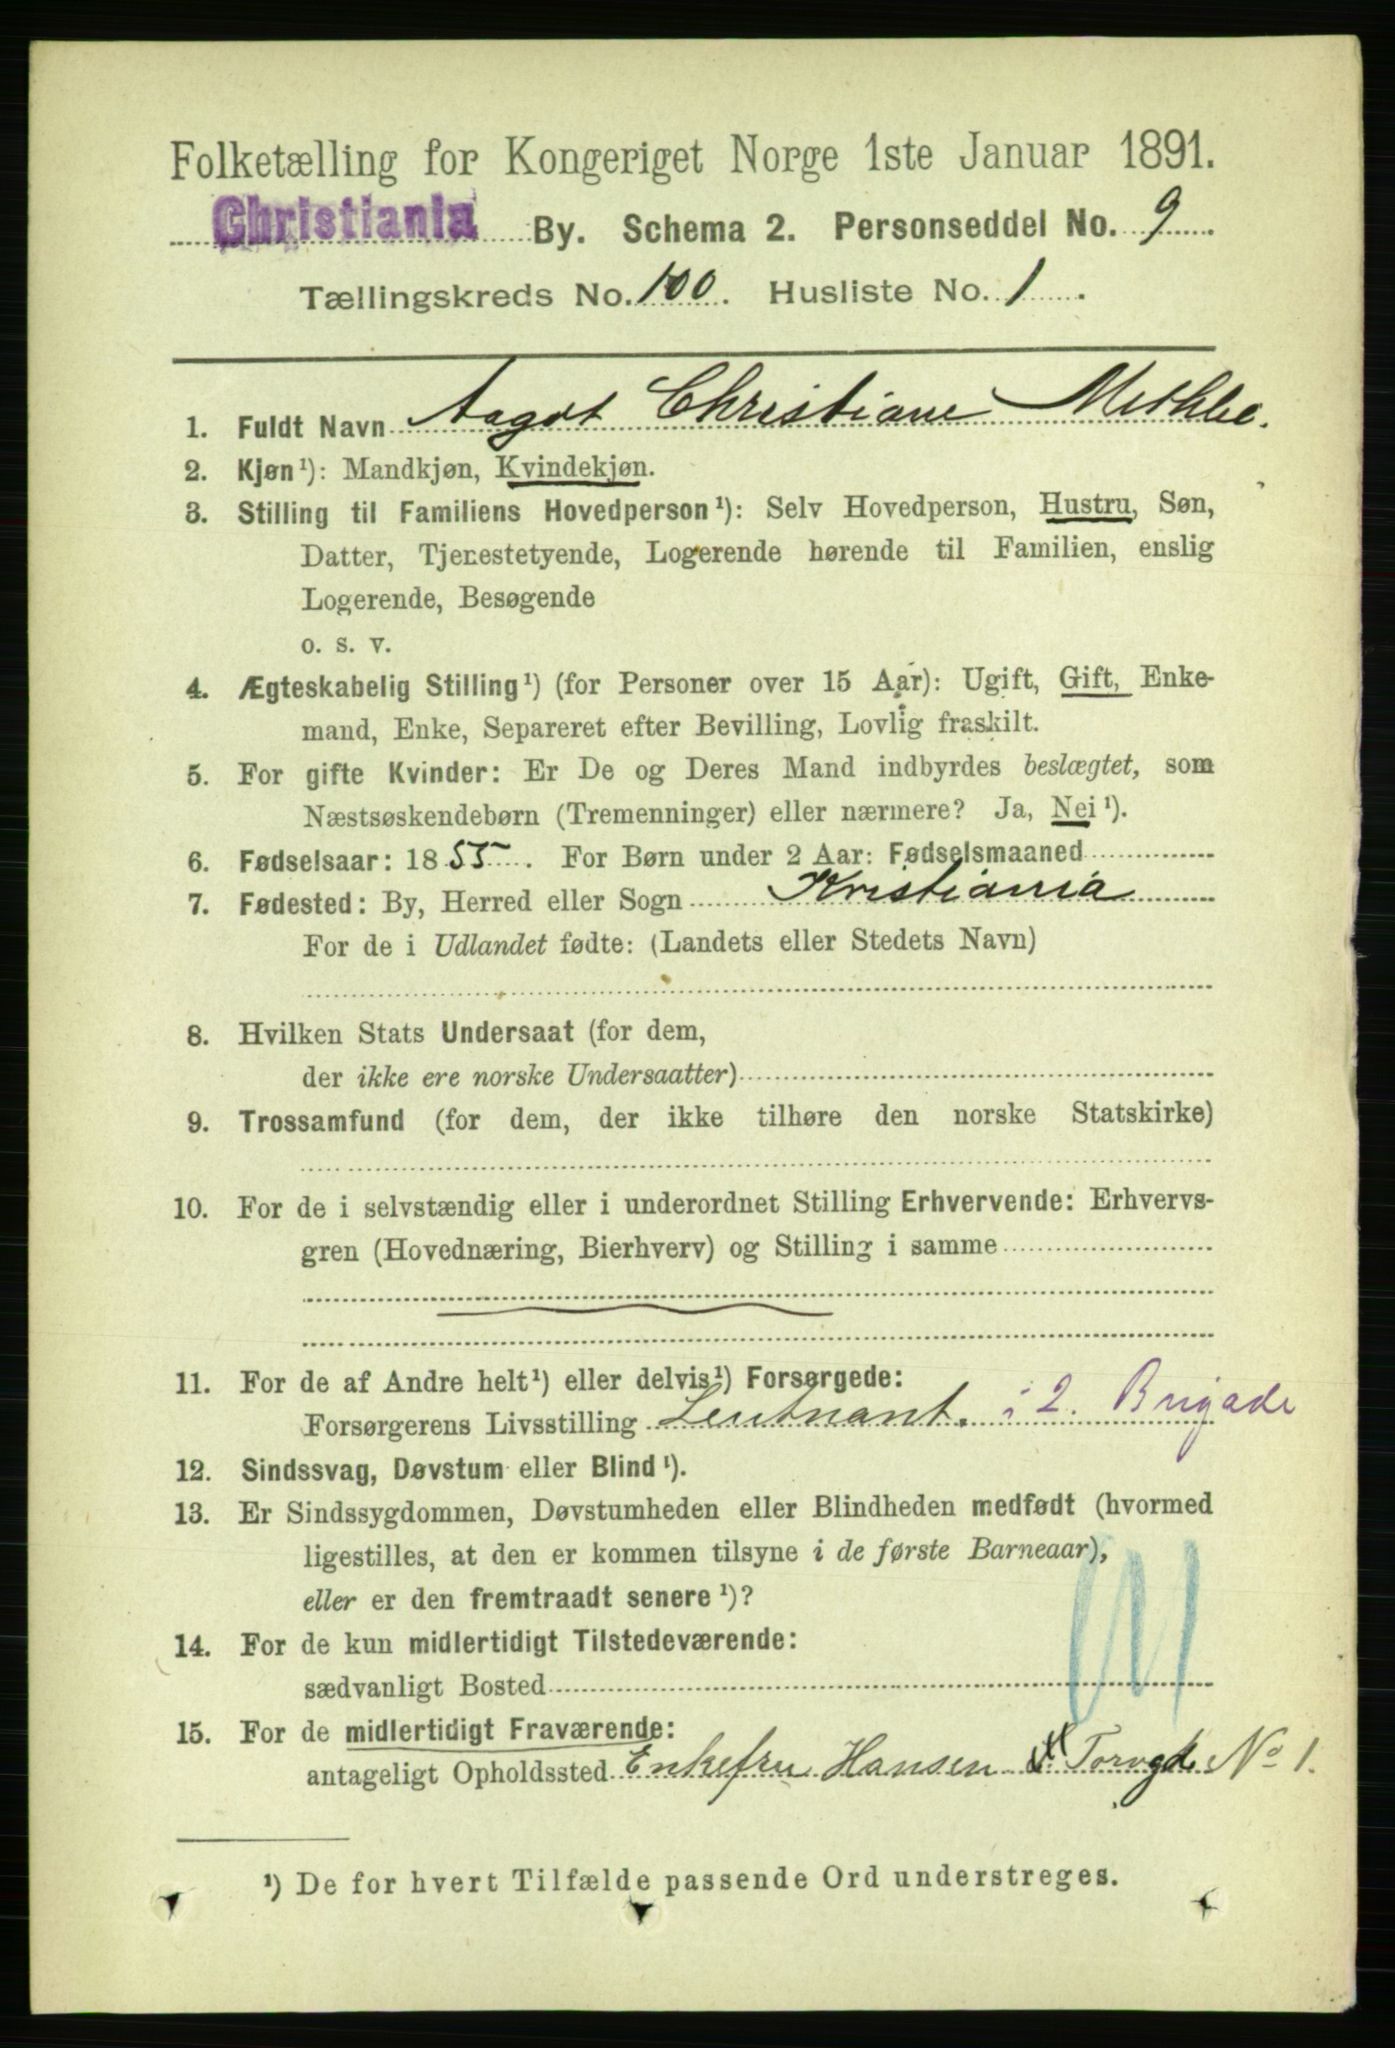 Folketælling for Kongeriget Norge 1ste Januar 1891.
Christiania By. Schema 2. Personseddel No. 9
Tællingskreds No. 100. Husliste No. 1.
1. Fuldt Navn Aagot Christiane Methlie.
2. Kjøn¹): Mandkjøn, Kvindekjøn.
3. Stilling til Familiens Hovedperson¹): Selv Hovedperson, Hustru, Søn,
Datter, Tjenestetyende, Logerende hørende til Familien, enslig
Logerende, Besøgende
o. s. v.
4. Ægteskabelig Stilling¹) (for Personer over 15 Aar): Ugift, Gift, Enke-
mand, Enke, Separeret efter Bevilling, Lovlig fraskilt.
5. For gifte Kvinder: Er De og Deres Mand indbyrdes beslægtet, som
Næstsøskendebørn (Tremenninger) eller nærmere? Ja, Nei¹).
6. Fødselsaar: 1855. For Børn under 2 Aar: Fødselsmaaned
7. Fødested: By, Herred eller Sogn Kristiania
For de i Udlandet fødte: (Landets eller Stedets Navn)
8. Hvilken Stats Undersaat (for dem,
der ikke ere norske Undersaatter)
9. Trossamfund (for dem, der ikke tilhøre den norske Statskirke)
10. For de i selvstændig eller i underordnet Stilling Erhvervende: Erhvervs-
gren (Hovednæring, Bierhverv) og Stilling i samme
11. For de af Andre helt¹) eller delvis¹) Forsørgede:
Forsørgerens Livsstilling Leutnant. i 2. Brigade
12. Sindssvag, Døvstum eller Blind¹).
13. Er Sindssygdommen, Døvstumheden eller Blindheden medfødt (hvormed
ligestilles, at den er kommen tilsyne i de første Barneaar),
eller er den fremtraadt senere¹)?
14. For de kun midlertidigt Tilstedeværende:
sædvanligt Bosted
15. For de midlertidigt Fraværende:
antageligt Opholdssted Enkefru Hansen Torvgd. No 1.
¹) De for hvert Tilfælde passende Ord understreges.